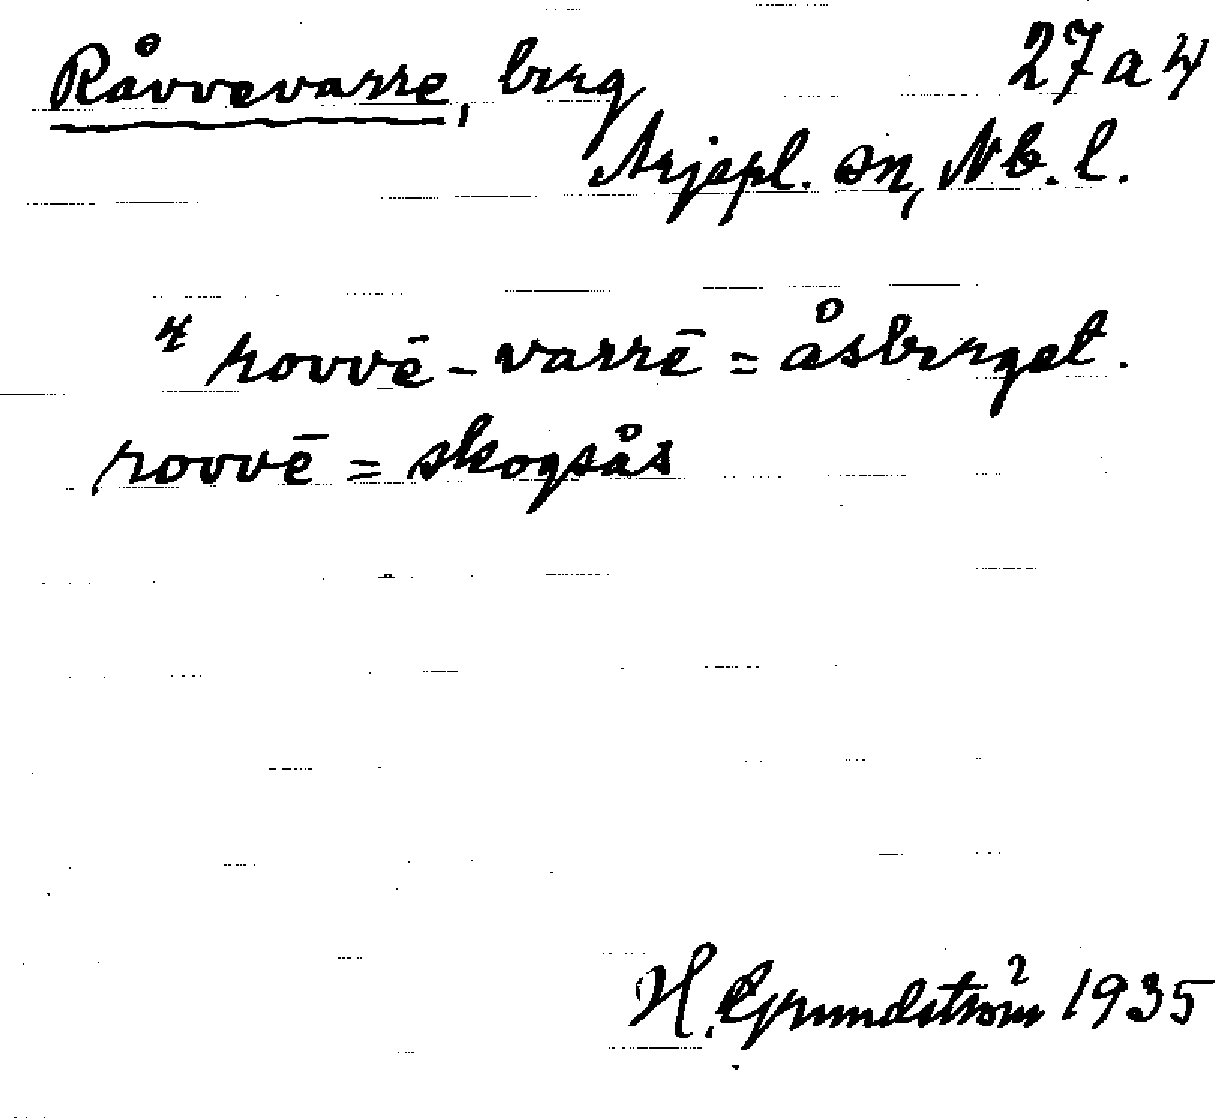 Råvvevarre, berg 27a4
Arjepl. sn, Nb. l.
4 rovvē-varrē = åsberget.
rovvē = skogsås
H. Grundström 1935